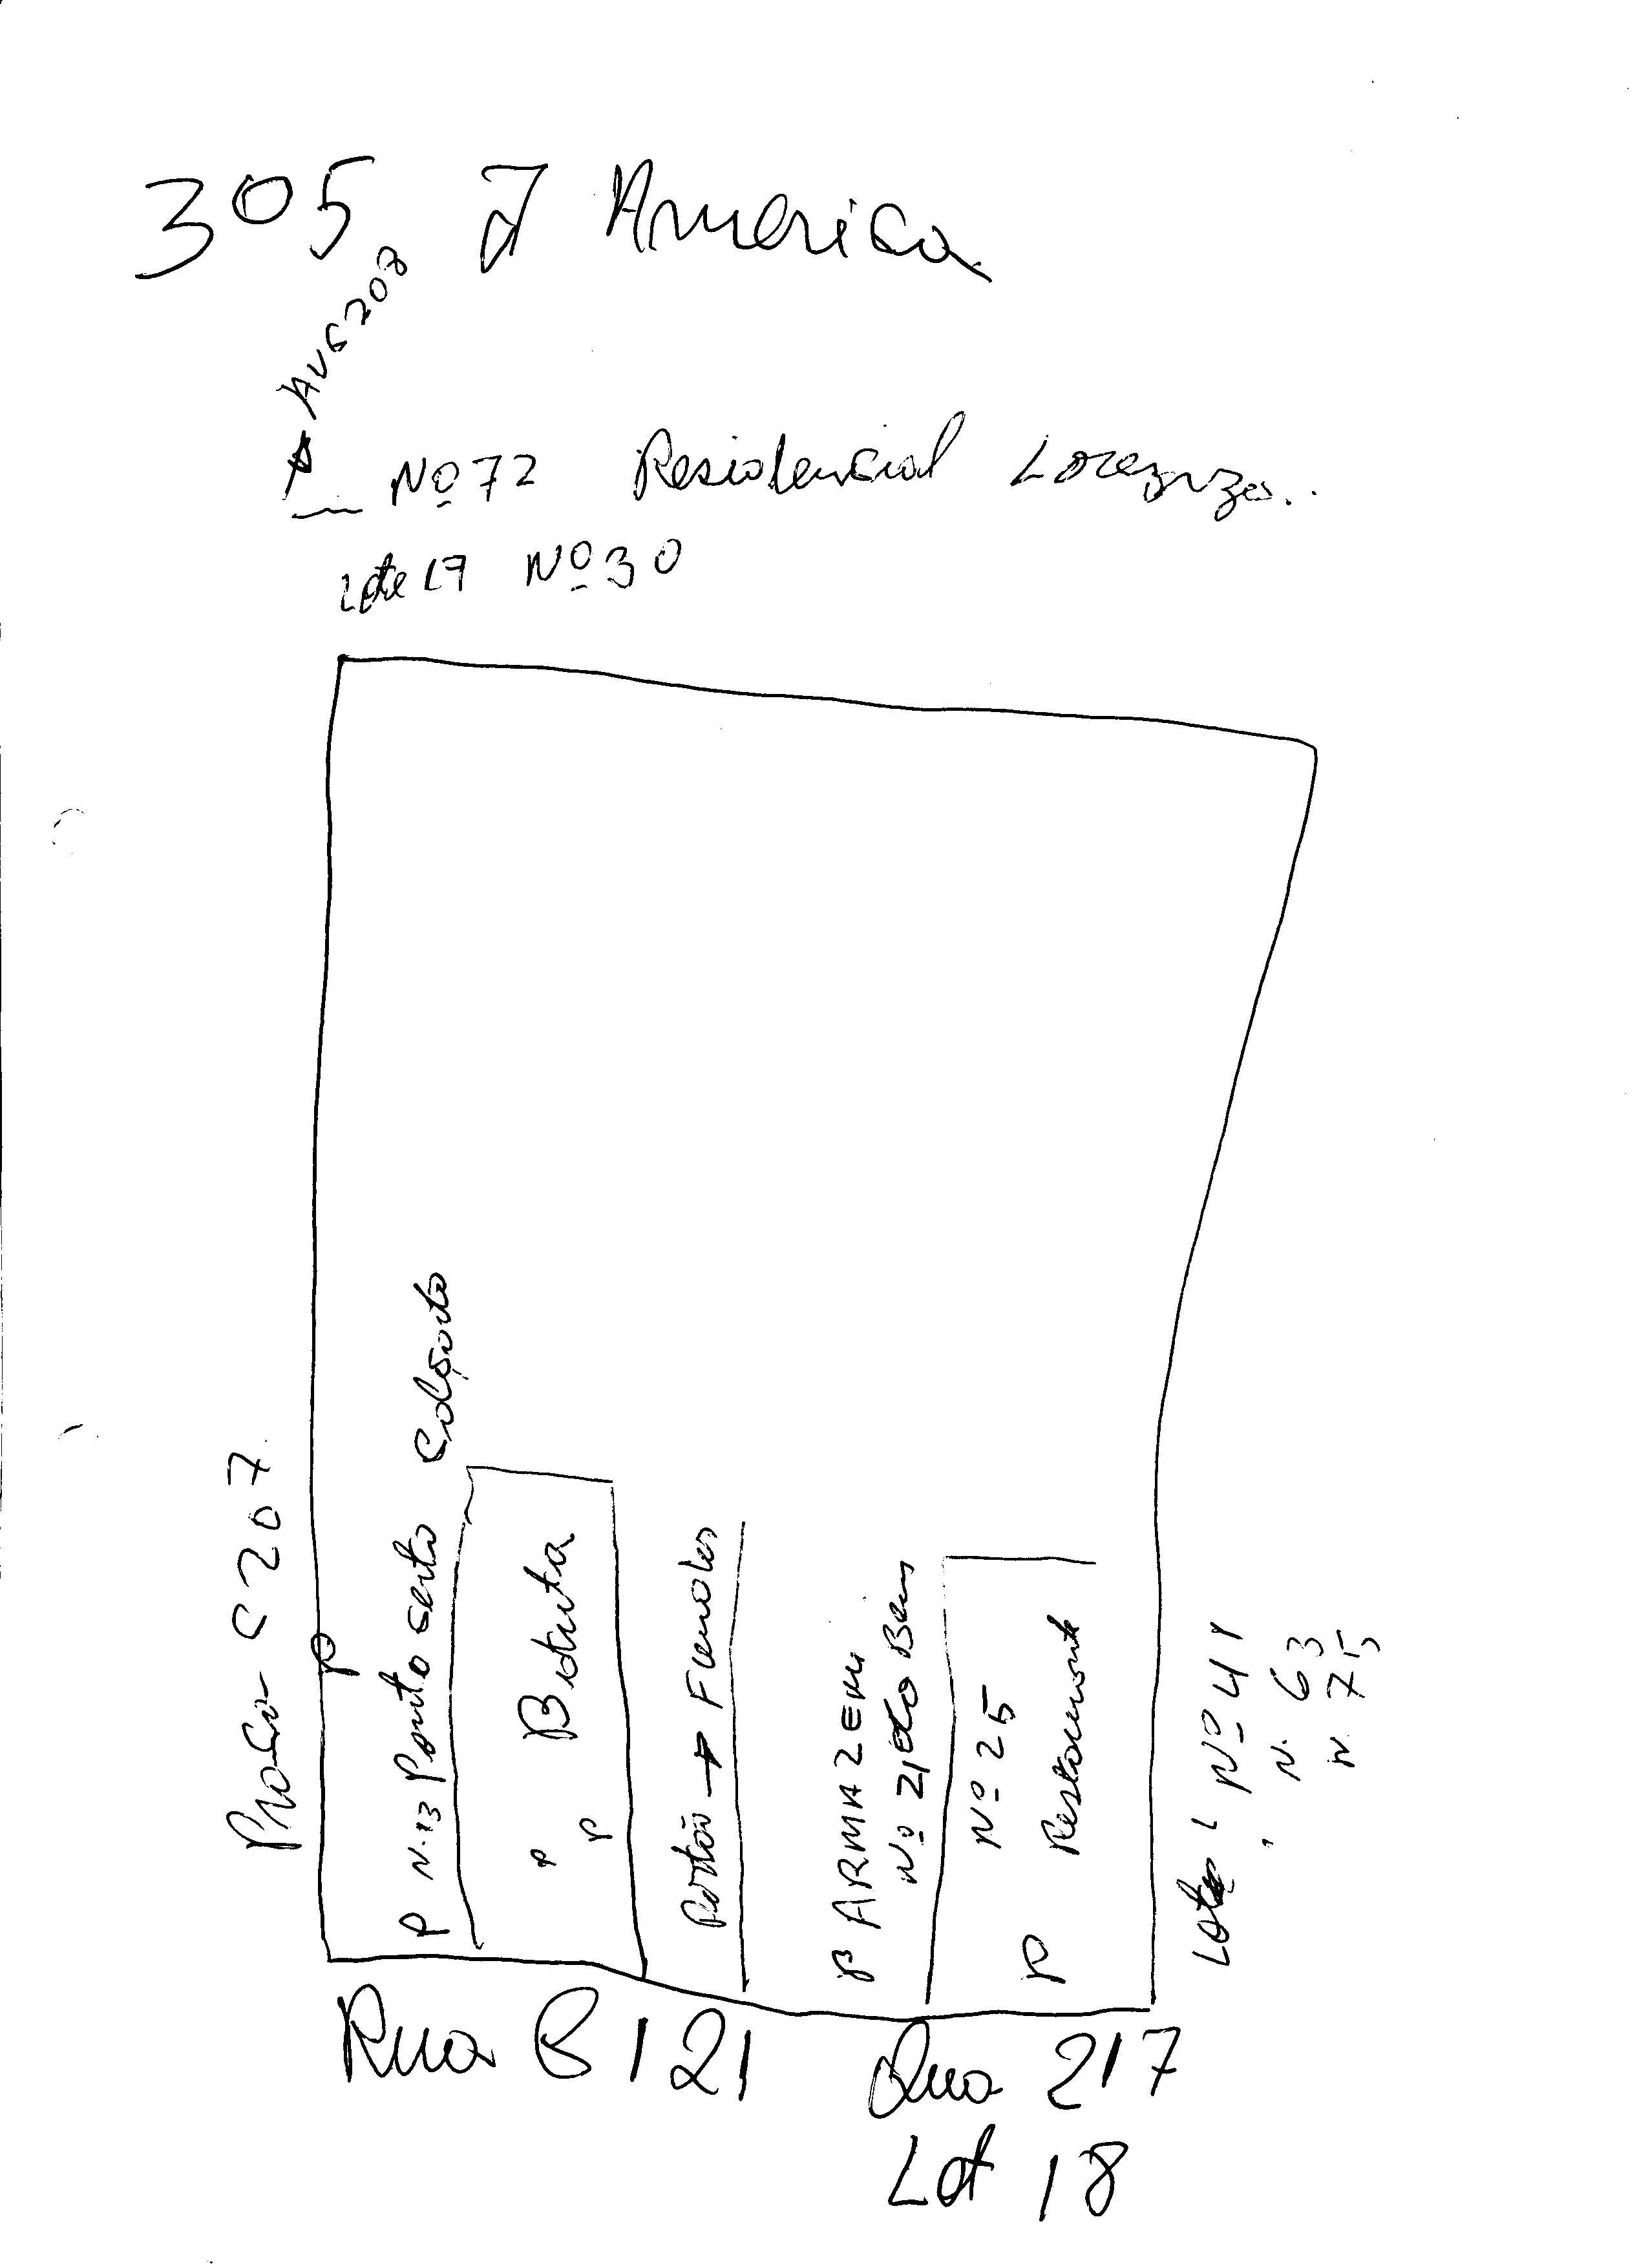 305 J America
Av C 208
Nº 72 Residencial Lorenzzo..
Lote 17 Nº 30
Praça C 207
P
P N. 13 Ponto Certo Calçado
P P Biruta
Portão → Fundos
P ARMAZEM
Nº 21 do Bem
Nº 25
P Restaurante
Lote 1 Nº 41
N. 63
N. 75
Rua C 121 Rua 217
Lot 18